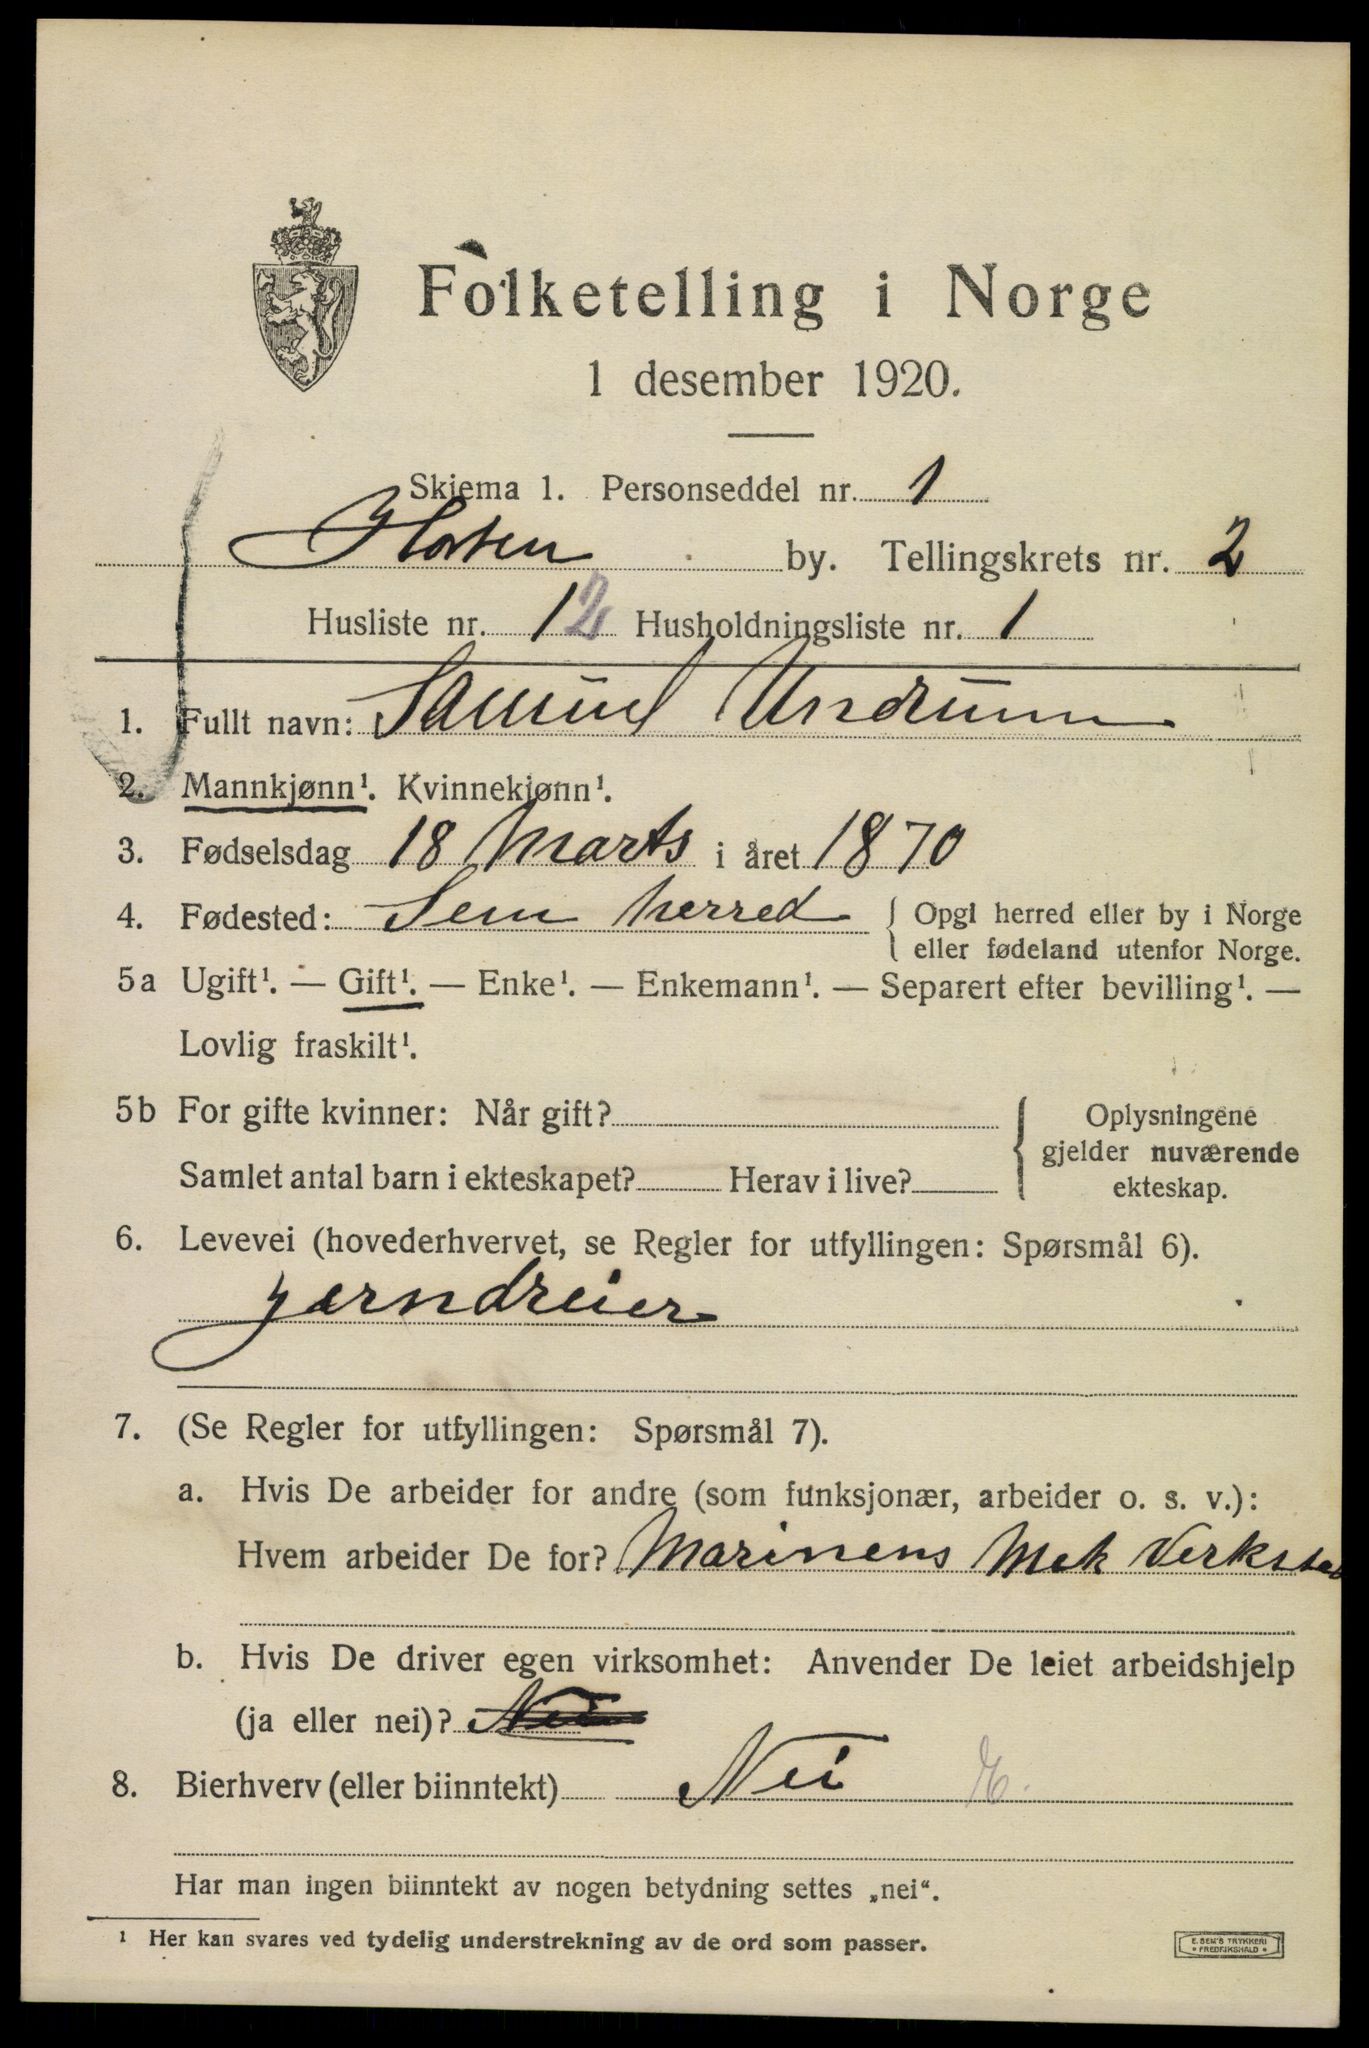 Folketelling i Norge
1 desember 1920.
Skjema 1. Personseddel nr. 1
Horten by. Tellingskrets nr. 2
Husliste nr. 12 Husholdningsliste nr. 1
1. Fullt navn: Samuel Undrum
2. Mannkjønn¹. Kvinnekjønn¹.
3. Fødselsdag 18 Marts i året 1870
4. Fødested: Sem herred { Opgi herred eller by i Norge
eller fødeland utenfor Norge.
5a Ugift¹. — Gift¹. — Enke¹. — Enkemann¹. — Separert efter bevilling¹. —
Lovlig fraskilt¹.
5b For gifte kvinner: Når gift?
Samlet antal barn i ekteskapet? Herav i live?
{ Oplysningene
gjelder nuværende
ekteskap.
6. Levevei (hovederhvervet, se Regler for utfyllingen: Spørsmål 6).
Jerndreier
7. (Se Regler for utfyllingen: Spørsmål 7).
a. Hvis De arbeider for andre (som funksjonær, arbeider o. s. v.):
Hvem arbeider De for? Marinens Mek Verkstad
b. Hvis De driver egen virksomhet: Anvender De leiet arbeidshjelp
(ja eller nei)? Nei
8. Bierhverv (eller biinntekt) Nei
Har man ingen biinntekt av nogen betydning settes „nei“.
¹ Her kan svares ved tydelig understrekning av de ord som passer.
E. SEM'S TRYKKERI
• FREDRIKSHALD •